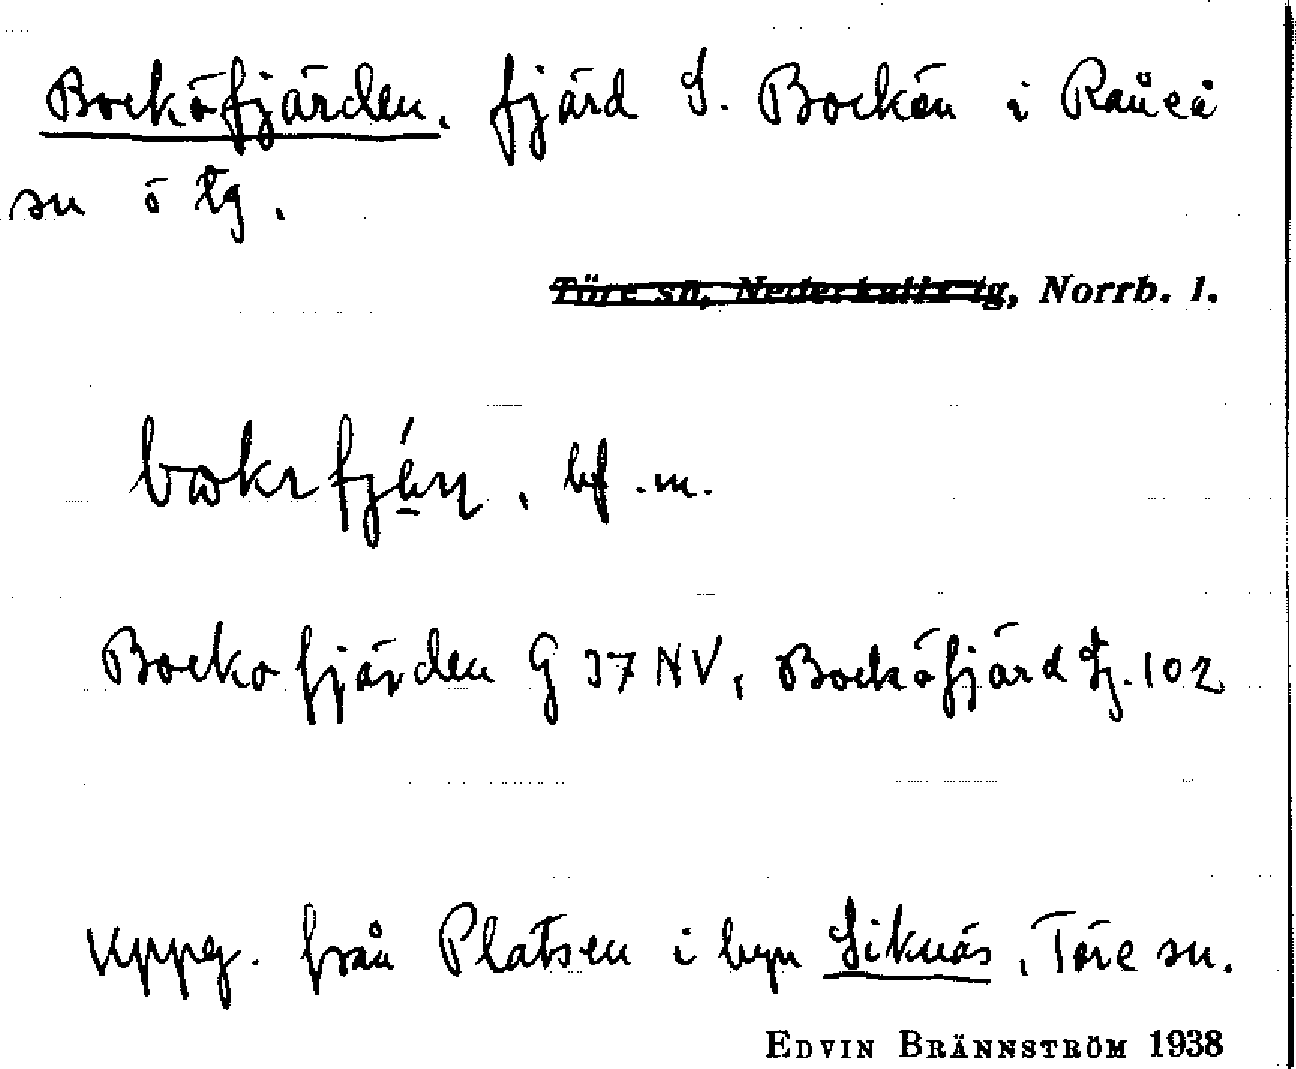 Bocköfjärden. fjärd S. Bockön i Råneå
sn o tg.
Töre sn, Nederkalix tg, Norrb. l.
bf. m.
Bockofjärden G 37 NV, Bocköfjärd Sj. 102
Uppg. från Platsen i byn Siknäs, Töre sn.
EDVIN BRÄNNSTRÖM 1938